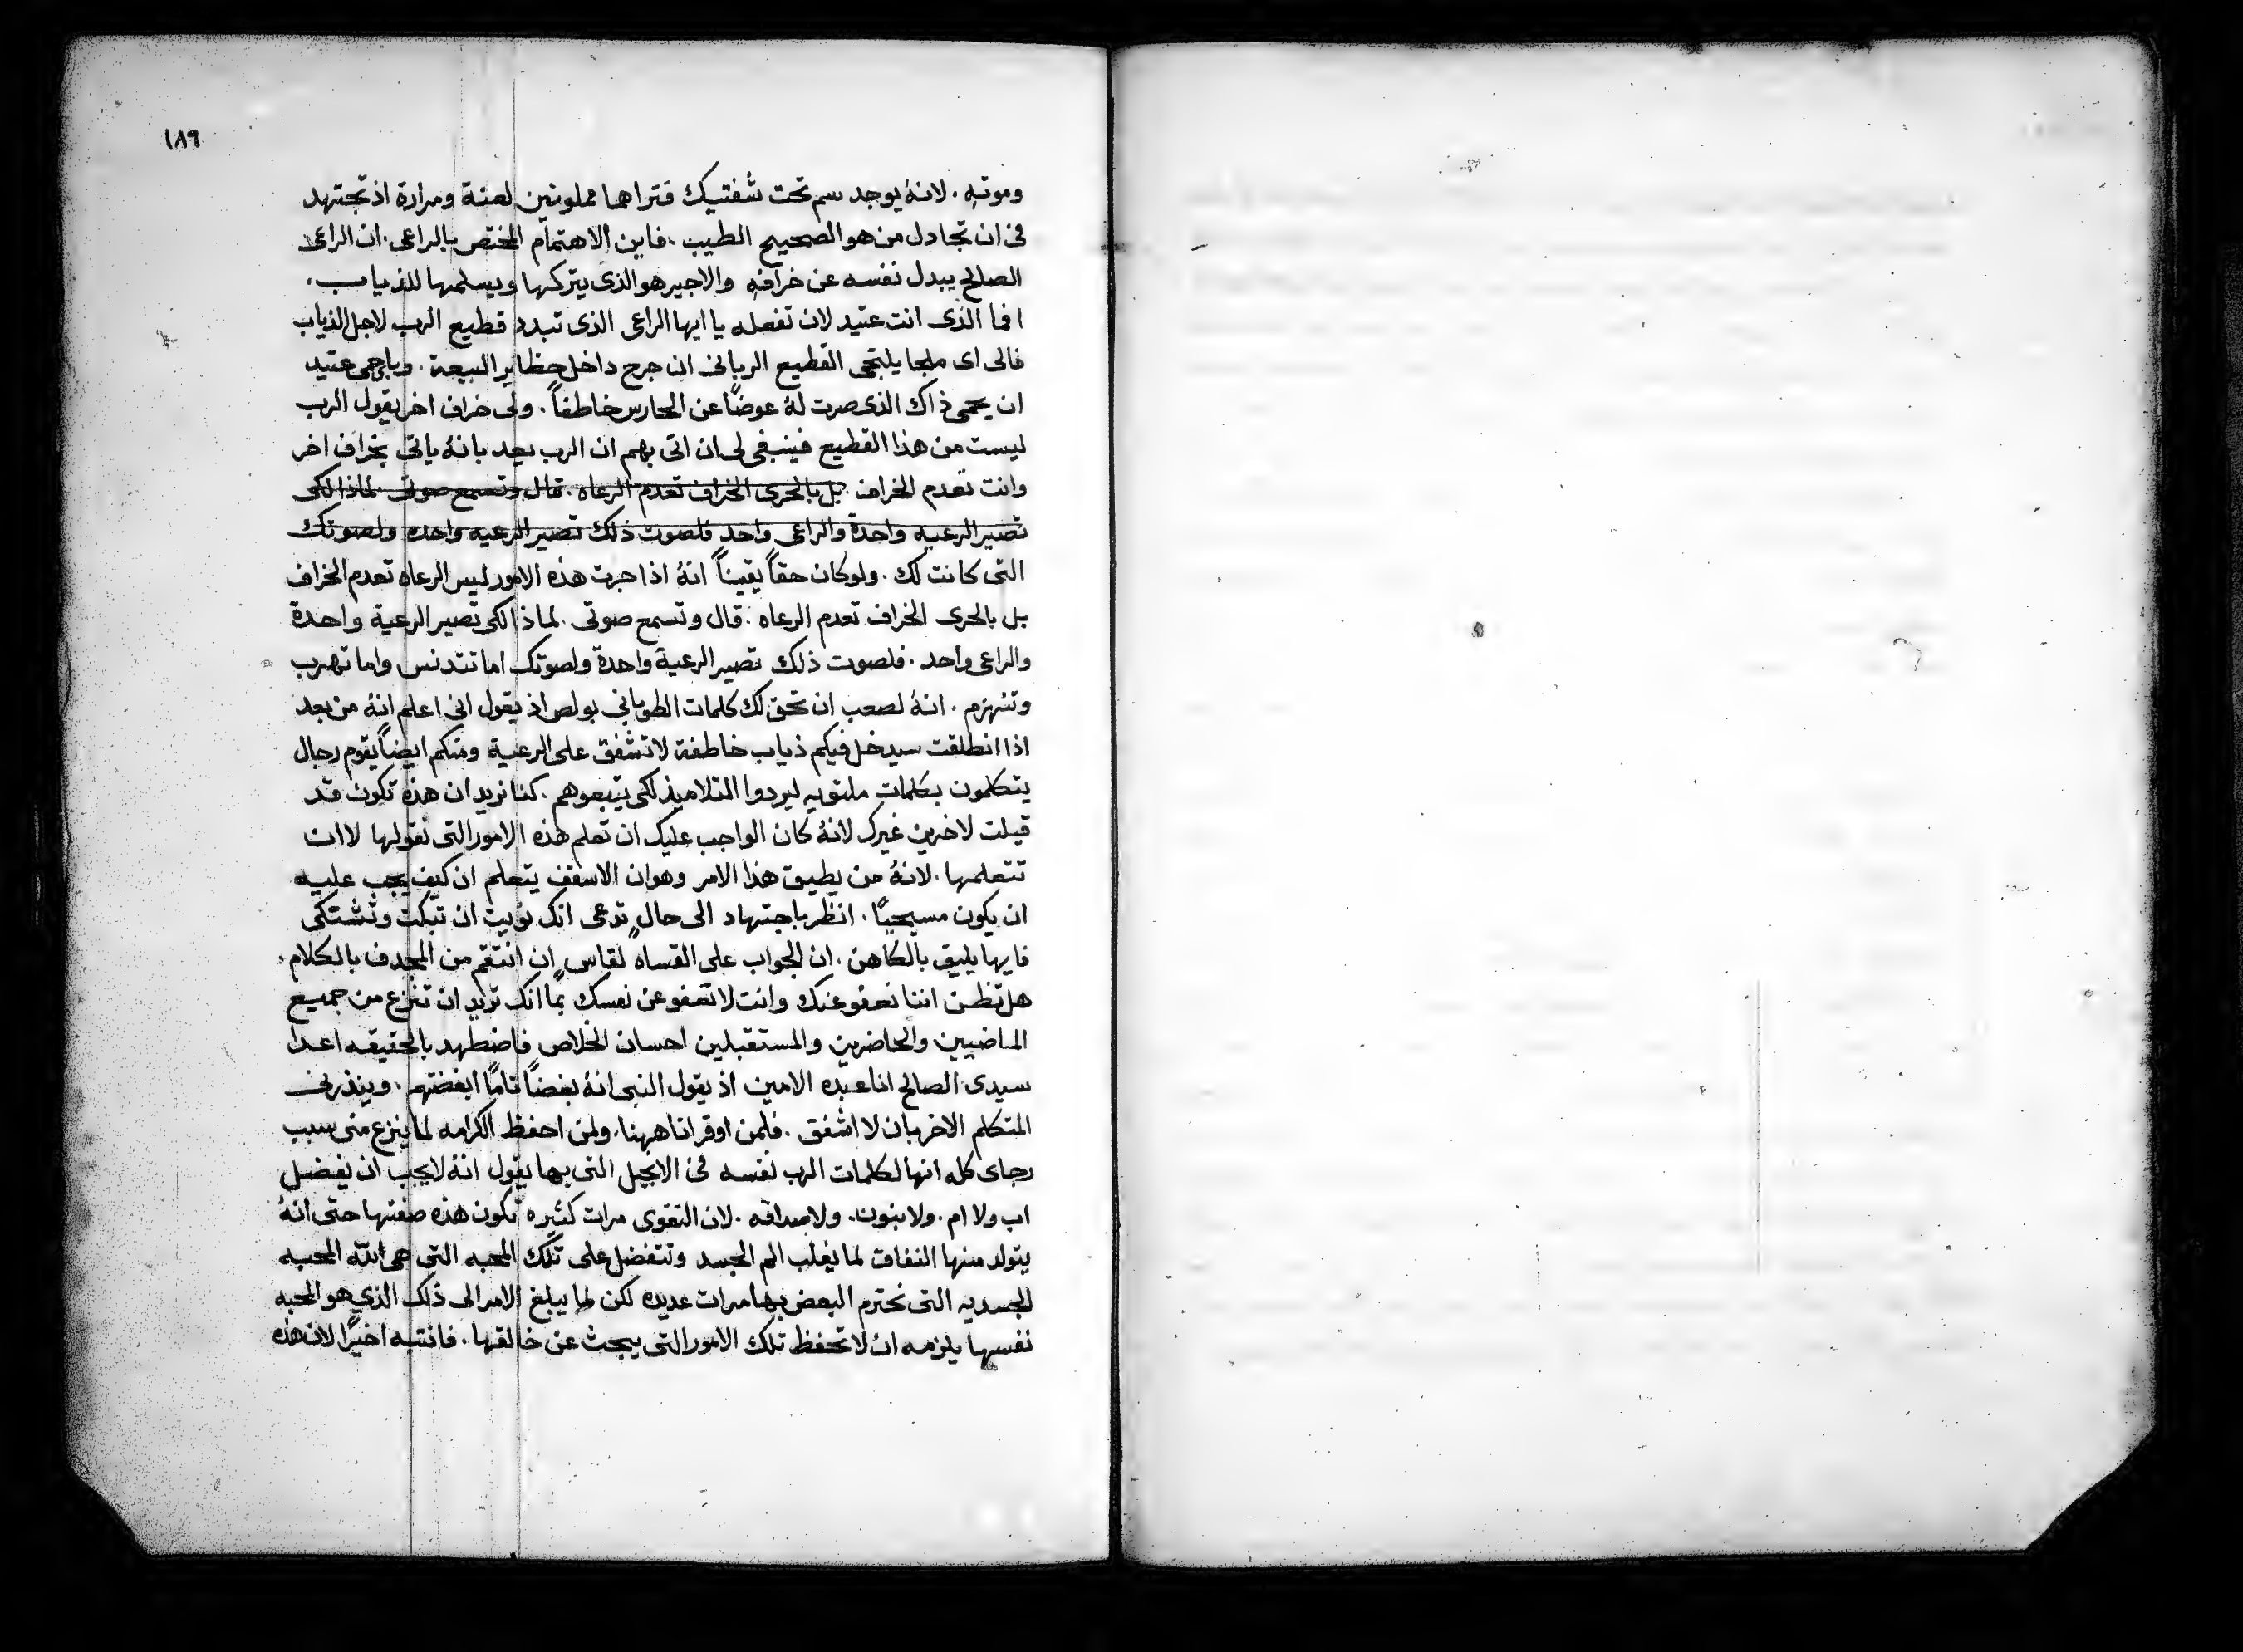 ١٨٩
وموته . لانهُ يوجد سم تحت شفتيك فتراهما مملوتين لعنة ومرارة اذ تجتهد
في ان تجادل من هو الصحيح الطيب . فاين الاهتمام المختص بالراعى . ان الراعى
الصالح يبدل نفسه عن خرافهِ والاجير هو الذى يتركها ويسلمها للذياب .
افما الذى انت عتيد لان تفعله يا ايها الراعى الذى تبدد قطيع الرب لاجل الذياب
فالى اى ملجا يلتجى القطيع الربانى ان جرح داخل حظاير البيعة . عتيد
ان يحمى ذاك الذى صرت لهُ عوضاً عن الحارس خاطفاً . ولى خراف اخر يقول الرب
ليست من هذا القطيع فينبغى لى ان اتى بهم ان الرب يعد بانهُ ياتى بخراف اخر
وانت تعدم الخراف . بل بالحرى الخراف تعدم الرعاه . قال وتسمع صوتى . لماذا لكى
تصير الرعيه واحدة والراعى واحد فلصوت ذلك تصير الرعيه واحده ولصوتك
التى كانت لك . ولو كان حقاً يقيناً انهُ اذا جرت هذه الامور ليس الرعاه تعدم الخراف
بل بالحرى الخراف تعدم الرعاه . قال وتسمع صوتى . لماذا لكى تصير الرعية واحدة
والراعى واحد . فلصوت ذلك تصير الرعية واحدة ولصوتك اما تتدنس واما تهرب
وتنهزم . انهُ لصعب ان تحق لك كلمات الطوبانى بولص اذ يقول انى اعلم انهُ من بعد
اذا انطلقت سيدخل فيكم ذياب خاطفة لا تشفق على الرعية ومنكم ايضاً يقوم رجال
يتكلمون بكلمات ملتويه ليردوا التلاميذ لكى يتبعوهم . كنا نريد ان هذه تكون قد
قيلت لاخرين غيرك لانهُ كان الواجب عليك ان تعلم هذه الامور التى نقولها لا ان
تتعلمها . لانهُ من يطيق هذا الامر وهو ان الاسقف يتعلم ان كيف يجب عليه
ان يكون مسيحيًا . انظر باجتهاد الى حالٍ تدعى انك نويت ان تبكت وتشتكى
فايها يليق بالكاهن . ان الجواب على القساه لقاس ان انتقم من المجدف بالكلام .
هل تظن اننا نعفو عنك وانت لا تعفو عن نفسك بما انك تريد ان تنزع من جميع
الماضيين والحاضرين والمستقبلين احسان الخلاص فاضطهد بالحقيقه اعدا
سيدى الصالح انا عبده الامين اذ يقول النبى انهُ بغضاً تامًا ابغضتهم . وينذرنى
المتكلم الاخر بان لا اشفق . فلمن اوقر انا ههنا . ولمن احفظ الكرامه لما ينزع منى سبب
رجاى كله انها لكلمات الرب نفسه فى الانجيل التى بها يقول انهُ لا يجب ان يفضل
اب ولا ام . ولا بنون . ولا صداقه . لان التقوى مرات كثيره تكون هذه صفتها حتى انهُ
يتولد منها النفاق لما يغلب الم الجسد وتتفضل على تلك المحبه التى هى الله المحبه
الجسديه التى نحترم البعض بها مرات عديده لكن لما يبلغ الامر الى ذلك الذي هو المحبه
نفسها يلزمه ان لا تحفظ تلك الامور التى يبحث عن خالقها . فانتبه اخيرًا لان هذه